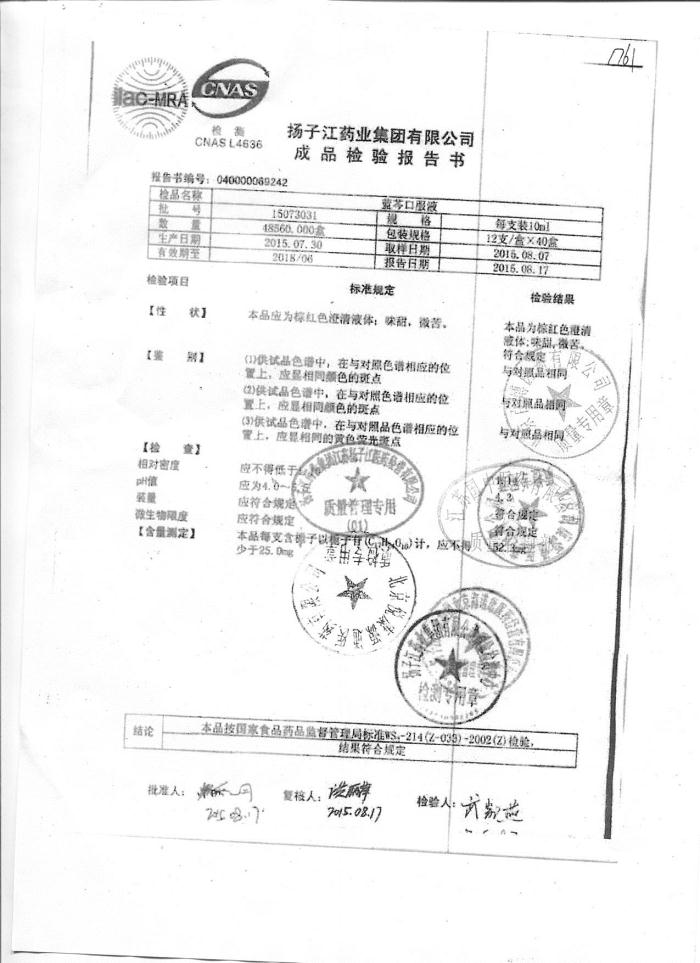 1761
ilac-MRA
CNAS
检 测
CNAS L4636
扬子江药业集团有限公司
成品检验报告书
报告书编号：040000069242
检品名称 蓝芩口服液
批 号 15073031 规 格 每支装10ml
数 量 48560.000盒 包装规格 12支/盒×40盒
生产日期 2015.07.30 取样日期 2015.08.07
有效期至 2018/06 报告日期 2015.08.17
检验项目 标准规定 检验结果
【性 状】 本品应为棕红色澄清液体；味甜，微苦。 本品为棕红色澄清
液体；味甜，微苦。
符合规定
【鉴 别】 (1)供试品色谱中，在与对照色谱相应的位 与对照品相同
置上，应显相同颜色的斑点
(2)供试品色谱中，在与对照色谱相应的位 与对照品相同
置上，应显相同颜色的斑点
(3)供试品色谱中，在与对照品色谱相应的位 与对照品相同
置上，应显相同的黄色荧光斑点
【检 查】
相对密度 应不得低于
pH值 应为4.0～5.5 4.3
装量 应符合规定 符合规定
微生物限度 应符合规定 符合规定
【含量测定】 本品每支含栀子以栀子苷 计，应不得
少于25.0mg
质量专用章
质量管理专用
(01)
质检专用章
检测专用章
结论 本品按国家食品药品监督管理局标准WS₃-214(Z-033)-2002(Z)检验，
结果符合规定
批准人： 复核人： 检验人：
2015.08.17 2015.08.17